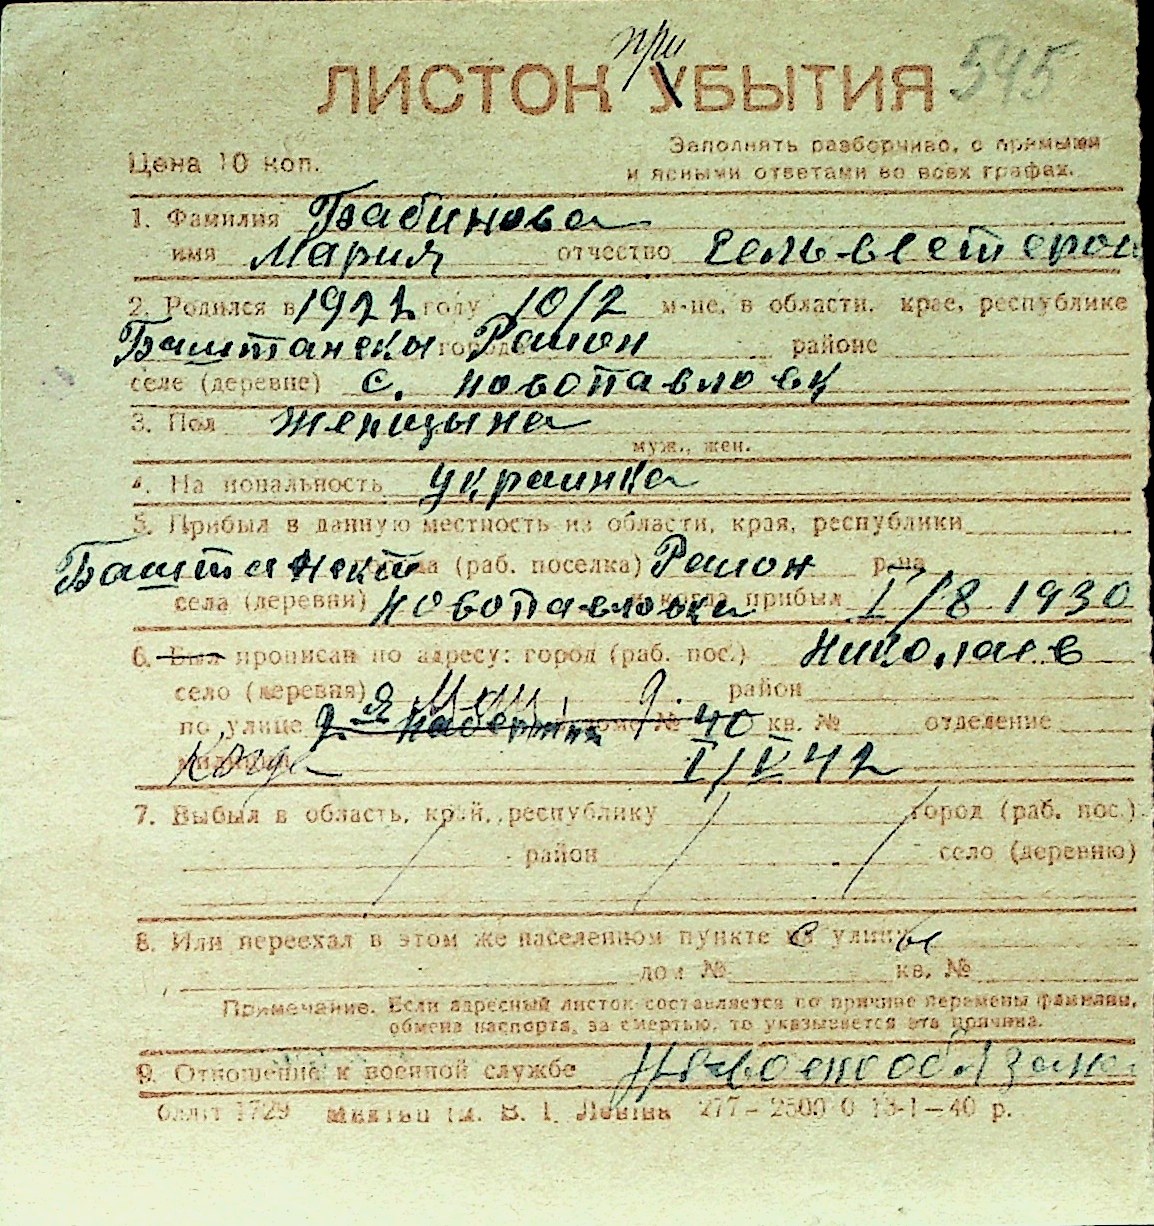 при
ЛИСТОК УБЫТИЯ 545
Цена 10 коп.
Заполнять разборчиво, с прямыми
и ясными ответами во всех графах.
1. Фамилия Бабинова
имя Мария отчество Сельвестеров
2. Родился в 1922 году 10/2 м-це, в области, крае, республике
Баштански города Район районе
селе (деревне) с. Новопавловк
3. Пол женщына
муж., жен.
4. Национальность украинка
5. Прибыл в данную местность из области, края, республики
Баштански города (раб. поселка) Район р-на
села (деревни) Новопавловки и когда прибыл I/8 1930
6. Был прописан по адресу: город (раб. пос.) Николаев
село (деревня) район
по улице 2-я Набережная дом № 40 кв. № отделение
милиции Когда I/V 42
7. Выбыл в область, край, республику город (раб. пос.)
район село (деревню)
8. Или переехал в этом же населенном пункте с улицы
дом № кв. №
Примечание. Если адресный листок составляется по причине перемены фамилии,
обмена паспорта, за смертью, то указывается эта причина.
9. Отношение к военной службе Невоенообязан.
блант 1729 им. В. І. Леніна 277–2500 0 13-1–40 р.